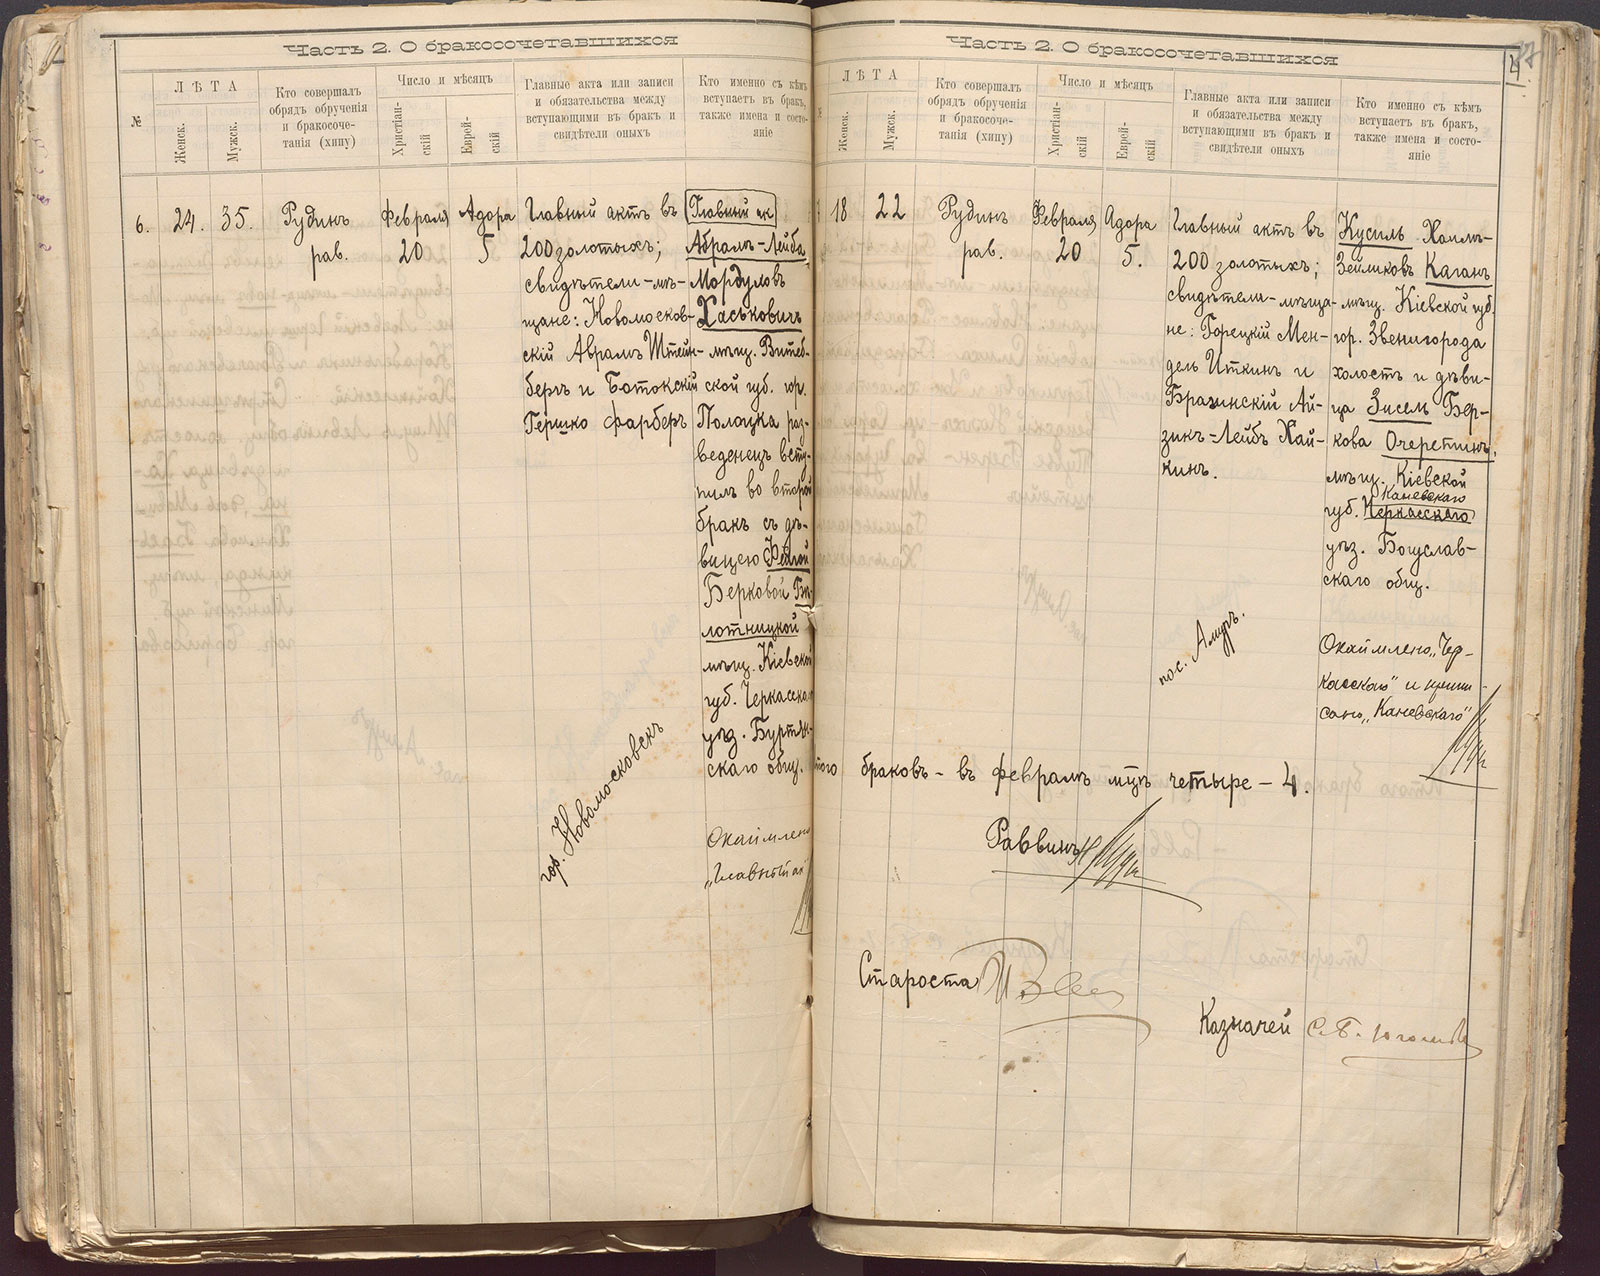 Часть 2. О бракосочетавшихся
№
ЛѢТА
Женск.
Мужск.
Кто совершалъ
обрядъ обрученія
и бракосоче-
танія (хипу)
Число и мѣсяцъ
Христіан-
скій
Еврей-
скій
Главные акта или записи
и обязательства между
вступающими въ бракъ и
свидѣтели оныхъ
Кто именно съ кѣмъ
вступаетъ въ бракъ,
также имена и состо-
яніе
6.
24.
35.
Рудинъ
рав.
Февраля
20
Адора
5
Главный актъ въ
200 золотыхъ;
свидѣтели - мѣ-
щане: Новомосков-
скій Аврамъ Штейн-
бергъ и Ботокскій
Гершко Фарберъ
гор. Новомосковскъ
Главный ак
Абрамъ-Лейба
Мордуховъ
Хаськовичъ
мѣщ. Витеб-
ской губ. гор.
Полоцка раз-
веденецъ всту-
пилъ во второй
бракъ съ дѣ-
вицею Фейгой
Берковой Бо-
лотницкой
мѣщ. Кіевской
губ. Черкасска
уѣз.
скаго общ.
Окаймлено
„Главный ак
Часть 2. О бракосочетавшихся
4
ЛѢТА
Женск.
Мужск.
Кто совершалъ
обрядъ обрученія
и бракосоче-
танія (хипу)
Число и мѣсяцъ
Христіан-
скій
Еврей-
скій
Главные акта или записи
и обязательства между
вступающими въ бракъ и
свидѣтели оныхъ
Кто именно съ кѣмъ
вступаетъ въ бракъ,
также имена и состо-
яніе
18
22
Рудинъ
рав.
Февраля
20
Адора
5.
Главный актъ въ
200 золотыхъ;
свидѣтели - мѣща-
не: Горецкій Мен-
дель Иткинъ и
Брагинскій Ай-
зикъ-Лейбъ Хай-
кинъ.
пос. Амуръ.
Кусиль Хаимъ-
Зейликовъ Каганъ
мѣщ. Кіевской губ.
гор. Звенигорода
холостъ и дѣви-
ца Зисель Бер-
кова Очеретинъ,
мѣщ. Кіевской
Каневскаго
губ. Черкасскаго
уѣз. Богуслав-
скаго общ.
Окаймлено „Чер-
касскаго" и припи-
сано „Каневскаго"
того браковъ - въ февралѣ мцѣ четыре - 4.
Раввинъ
Староста
Казначей